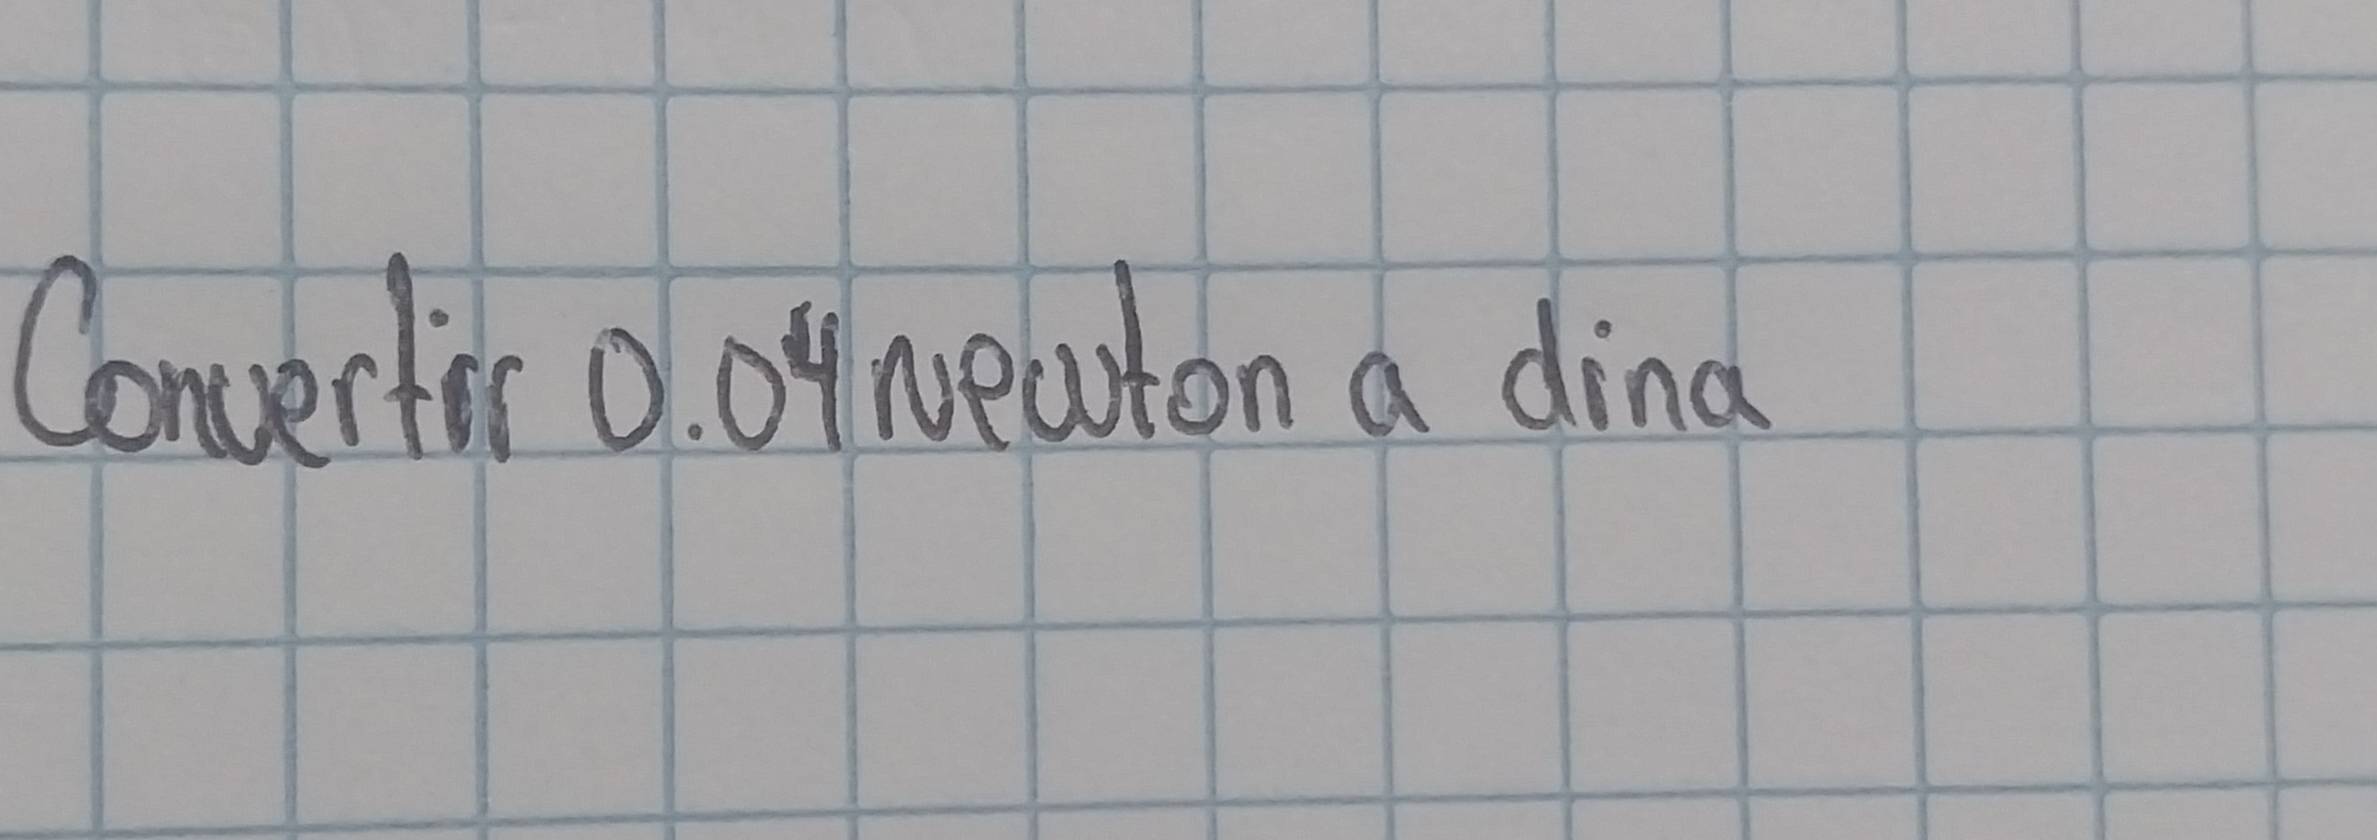 Convertir 0.04 newton a dina